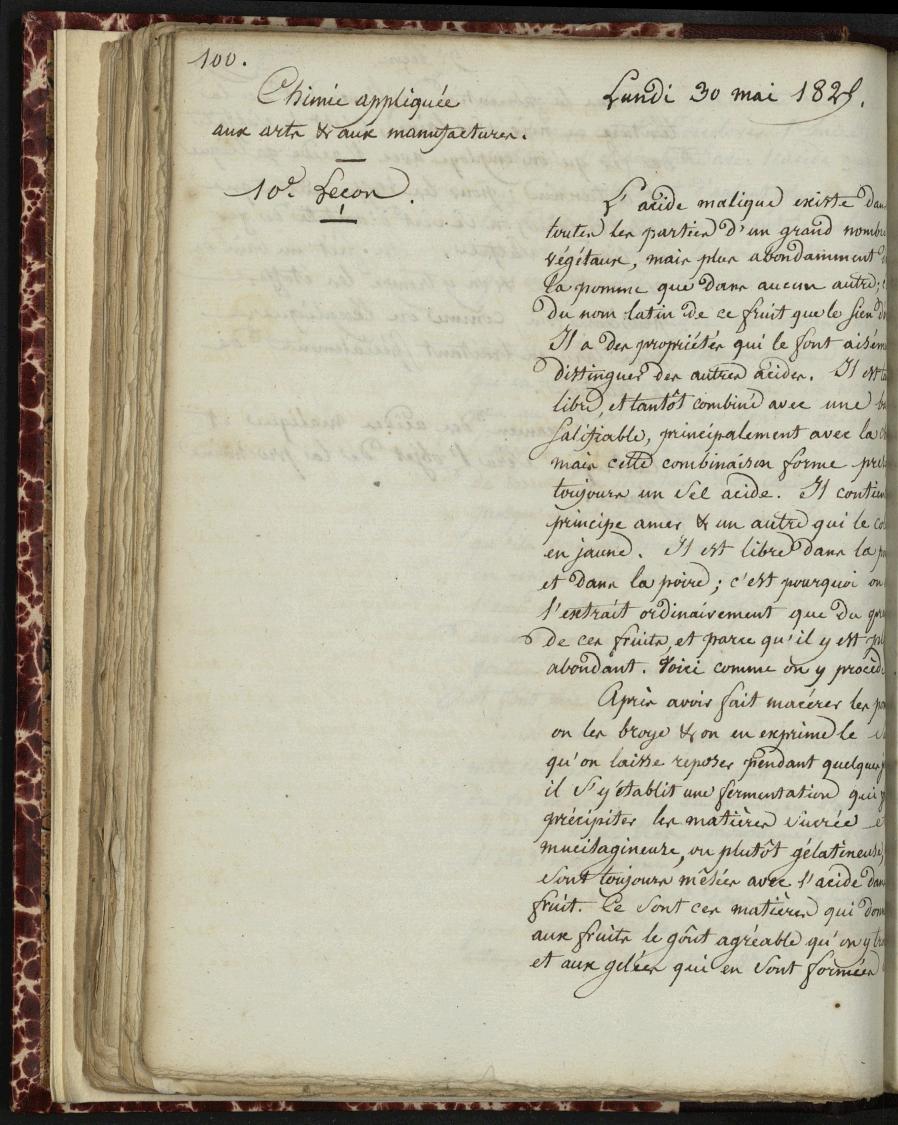 100.
Chimie appliquée
aux arts & aux manufactures.
10e Leçon.
Lundi 30 mai 1825.
L'acide malique existe dan
toutes les parties d'un grand nombre
végétaux, mais plus abondamment
la pomme que dans aucun autre;
du nom latin de ce fruit que le sien
Il a des propriétés qui le font aisém
distinguer des autres acides. Il est
libre, et tantôt combiné avec une
salifiable, principalement avec la
mais cette combinaison forme pres
toujours un sel acide. Il contien
principe amer & un autre qui le co
en jaune. Il est libre dans la
et dans la poire; c'est pourquoi on
l'extrait ordinairement que du
de ces fruits, et parce qu'il y est pl
abondant. Voici comme on y procède
Après avoir fait macérer les po
on les broye & on en exprime le
qu'on laisse reposer pendant quelques
il s'y établit une fermentation qui
précipiter les matières sucrée et
mucilagineuse, ou plutôt gélatineuse,
sont toujours mêlées avec l'acide dan
fruit. Ce sont ces matières qui donn
aux fruits le goût agréable qu'on y tro
et aux gelées qui en sont formées